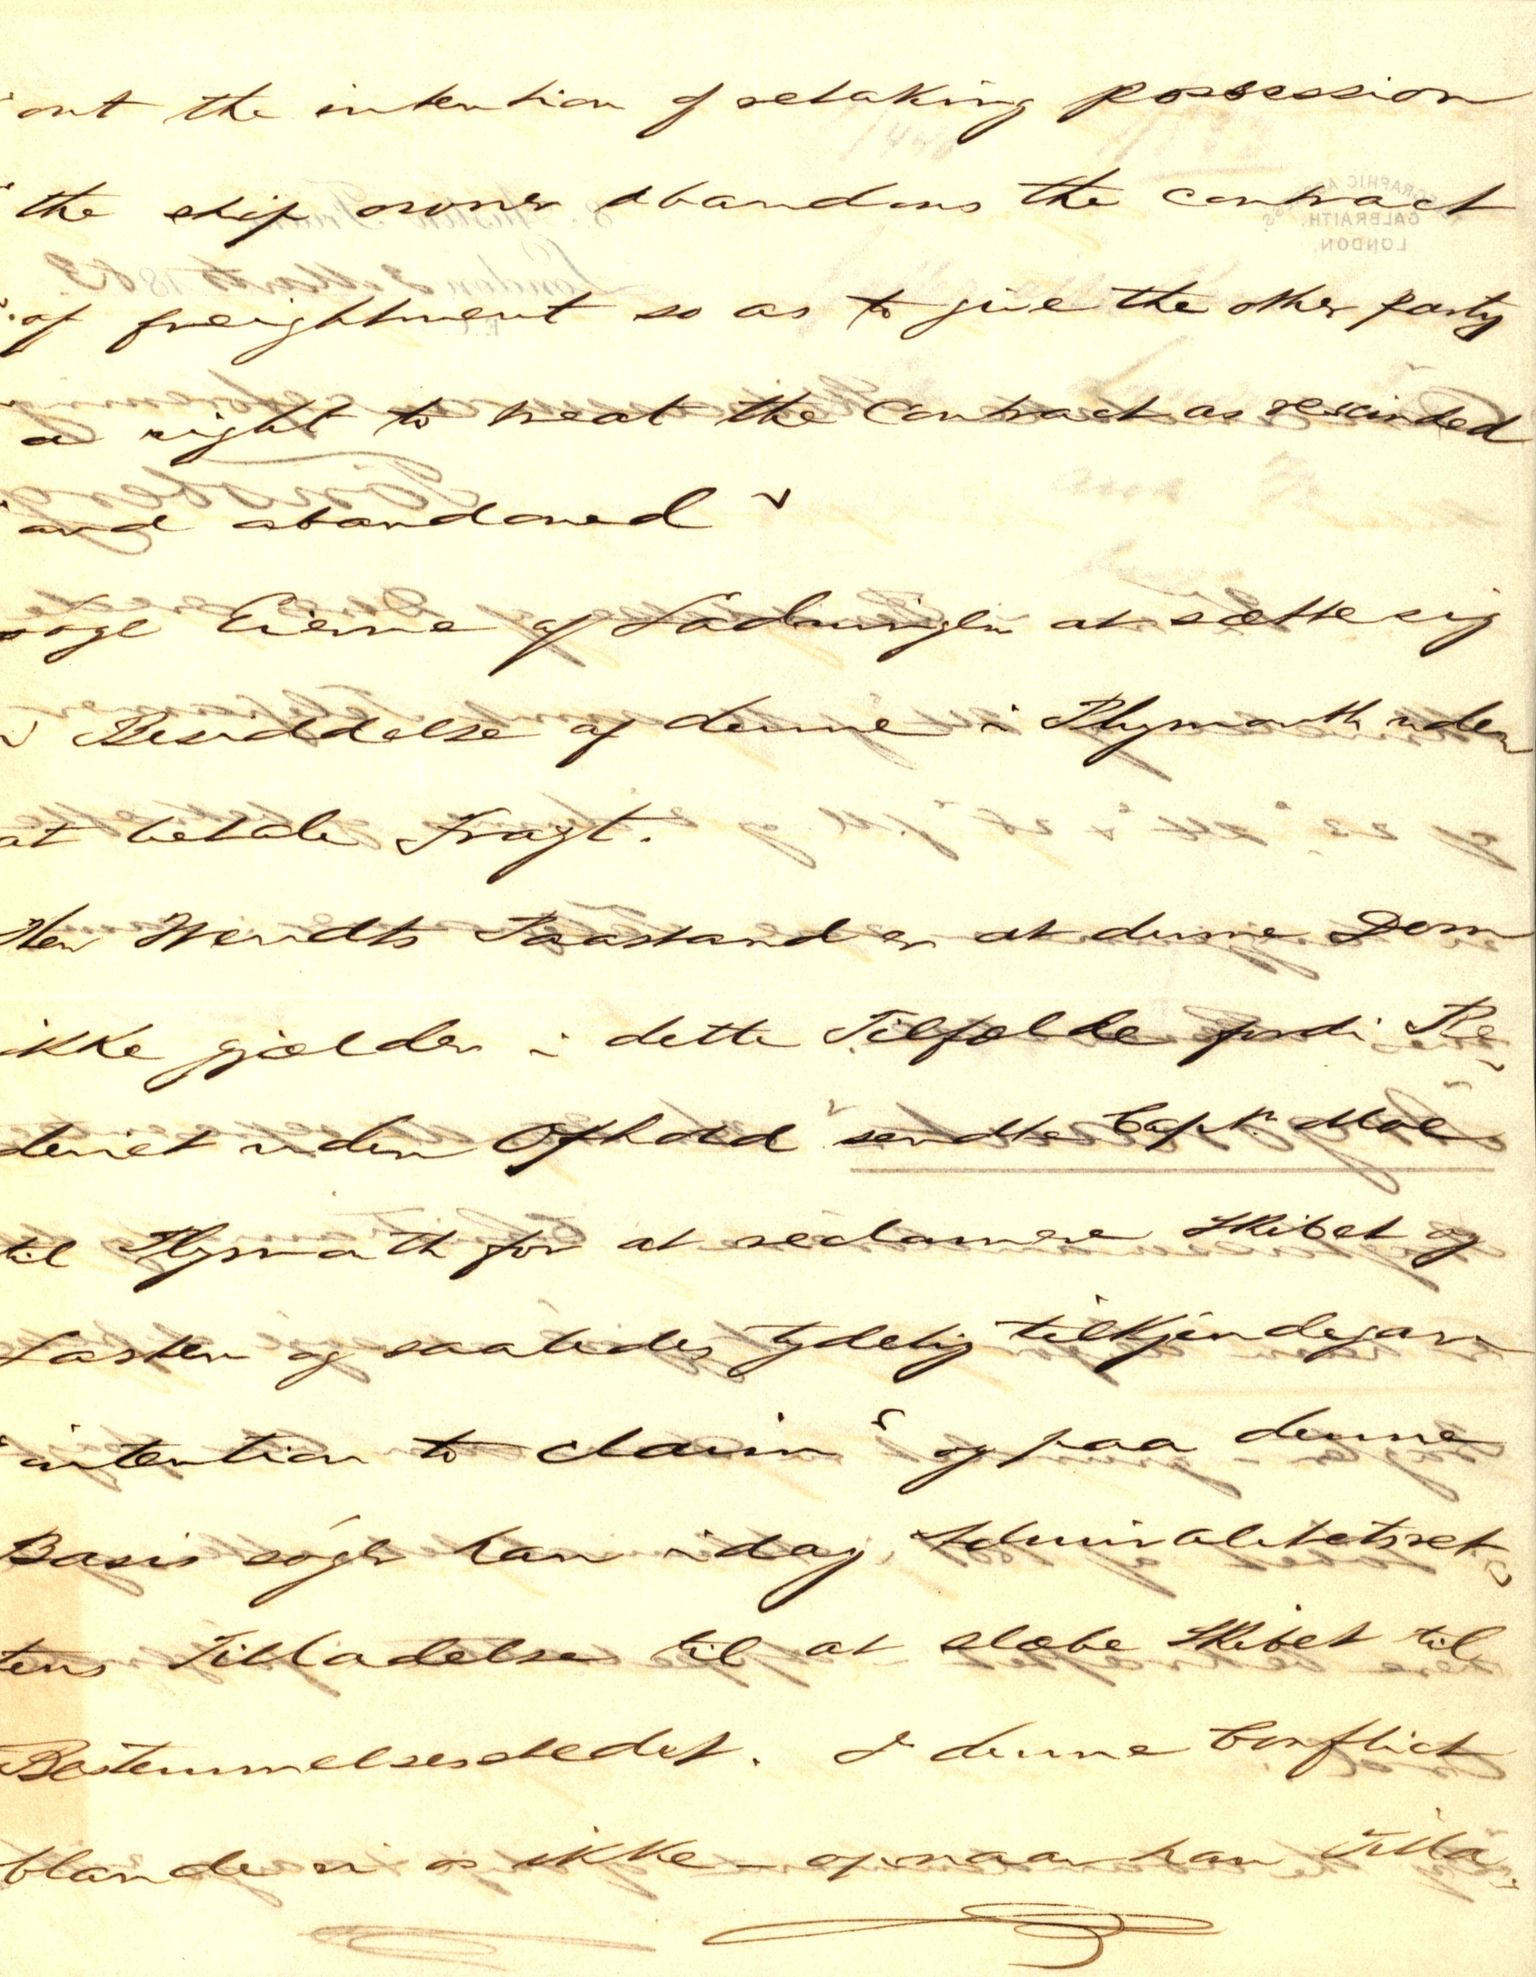 "out the intention of retaking possession
"the ship owner abandons the contract
"of freightment so as to give the other party
"a right to treat the Contract as rescinded
"and abandoned"
søge Eierne af Ladningen at sætte sig
i Besiddelse af denne i Plymouth uden
at betale Fragt.
Herr Wendts Paastand er at denne Dom
ikke gjælder i dette Tilfælde fordi Re-
deriet uden Ophold sendte Captn Moe
til Plymouth for at reclamere Skibet og
Lasten og saaledes tydelig tilkjendegav
"intention to claim" og paa denne
Basis søger han idag Admiralitetsret-
tens Tilladelse til at slæbe Skibet til
Bestemmelsesstedet. I denne Conflict
blande vi os ikke – opnaar han Tilla-